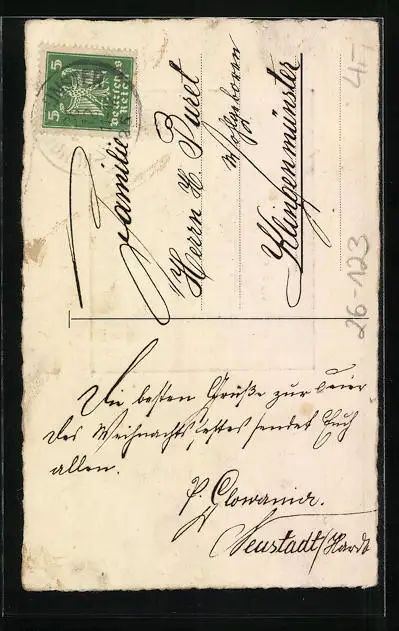 5
Deutsches Reich
5
Familie
Herrn H. Puret
Klingenmünster
4.-
26-123
Die besten Grüße zur Feier
des Weihnachtsfestes sendet Euch
allen.
P.
Neustadt/Hardt